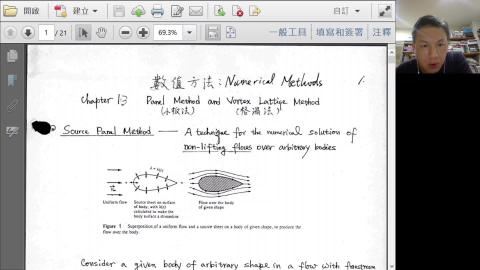 開啟 建立 自訂
1 / 21 69.3% 一般工具 填寫和簽署 注釋
數值方法: Numerical Methods 1.
Chapter 13 Panel Method and Vortex Lattice Method
(小板法) (格渦法)
Source Panel Method — A technique for the numerical solution of
non-lifting flows over arbitrary bodies
Uniform flow
Source sheet on surface
of body, with λ(s)
calculated to make the
body surface a streamline
Flow over the body
of given shape
Figure 1 Superposition of a uniform flow and a source sheet on a body of given shape, to produce the
flow over the body.
Consider a given body of arbitrary shape in a flow with freestream